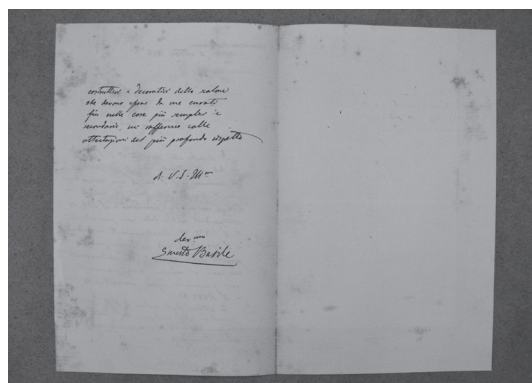 costruttivi e decorativi della
che devono essere da me curati
fin nelle cose più semplici e
secondarie, mi raffermo colle
attestazioni del più profondo rispetto
di V. S. Ill.ma
dev.mo
Ernesto Basile